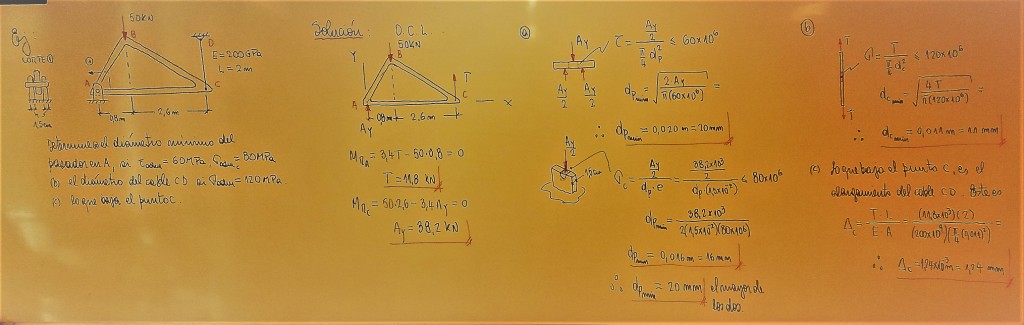 Ej:
50 KN
B
D
E = 200 GPa
L = 2m
CORTE ①
①
A
C
0,8m
2,6m
1,5cm
Determine a) el diámetro mínimo del
pasador en A, si τadm = 60MPa σadm c = 80MPa
(b) el diámetro del cable CD si σadm = 120MPa.
c) lo que baja el punto C.
Solución: D.C.L
50KN
Y
B
T
A
C
x
Ay
0,8m
2,6m
M_A = 3,4T - 50·0,8 = 0
T = 11,8 kN
M_C = 50·2,6 - 3,4Ay = 0
Ay = 38,2 kN
(a)
Ay
Ay/2 Ay/2
τ = (Ay/2)/(π/4 dp²) ≤ 60x10⁶
dp min = √(2·Ay/π(60x10⁶)) =
∴ dp min = 0,020 m = 20 mm
Ay/2
1,5cm
σc = (Ay/2)/(dp·e) = (38,2x10³/2)/(dp·(1,5x10⁻²)) ≤ 80x10⁶
dp min = 38,2x10³/(2(1,5x10⁻²)(80x10⁶))
dp min = 0,016 m = 16 mm
∴ dp min = 20 mm el mayor de
los dos.
(b)
T
T
σ = T/(π/4 dc²) ≤ 120x10⁶
dc min = √(4T/π(120x10⁶)) =
∴ dc min = 0,011 m = 11 mm
(c) Lo que baja el punto C, es el
alargamiento del cable CD. Este es
Δc = T·L/E·A = (11,8x10³)(2)/((200x10⁹)(π/4(0,011)²)) =
∴ Δc = 1,24x10⁻³m = 1,24 mm